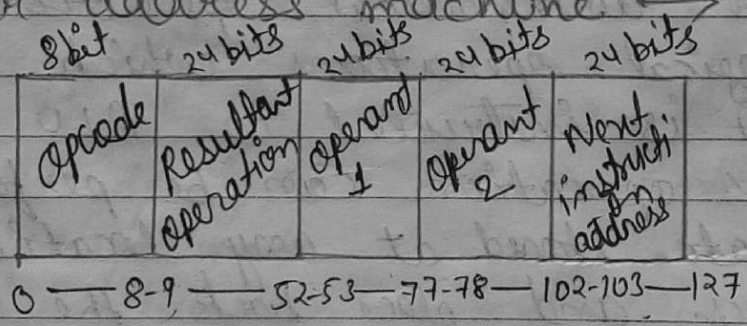 address machine
8 bit 24 bits 24 bits 24 bits 24 bits
Opcode Resultant operation Operant 1 Operant 2 Next instruction address
0 — 8-9 — 52-53 — 77-78 — 102-103 — 127